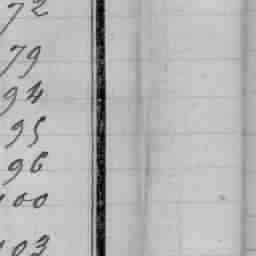 72
79
94
95
96
100
103